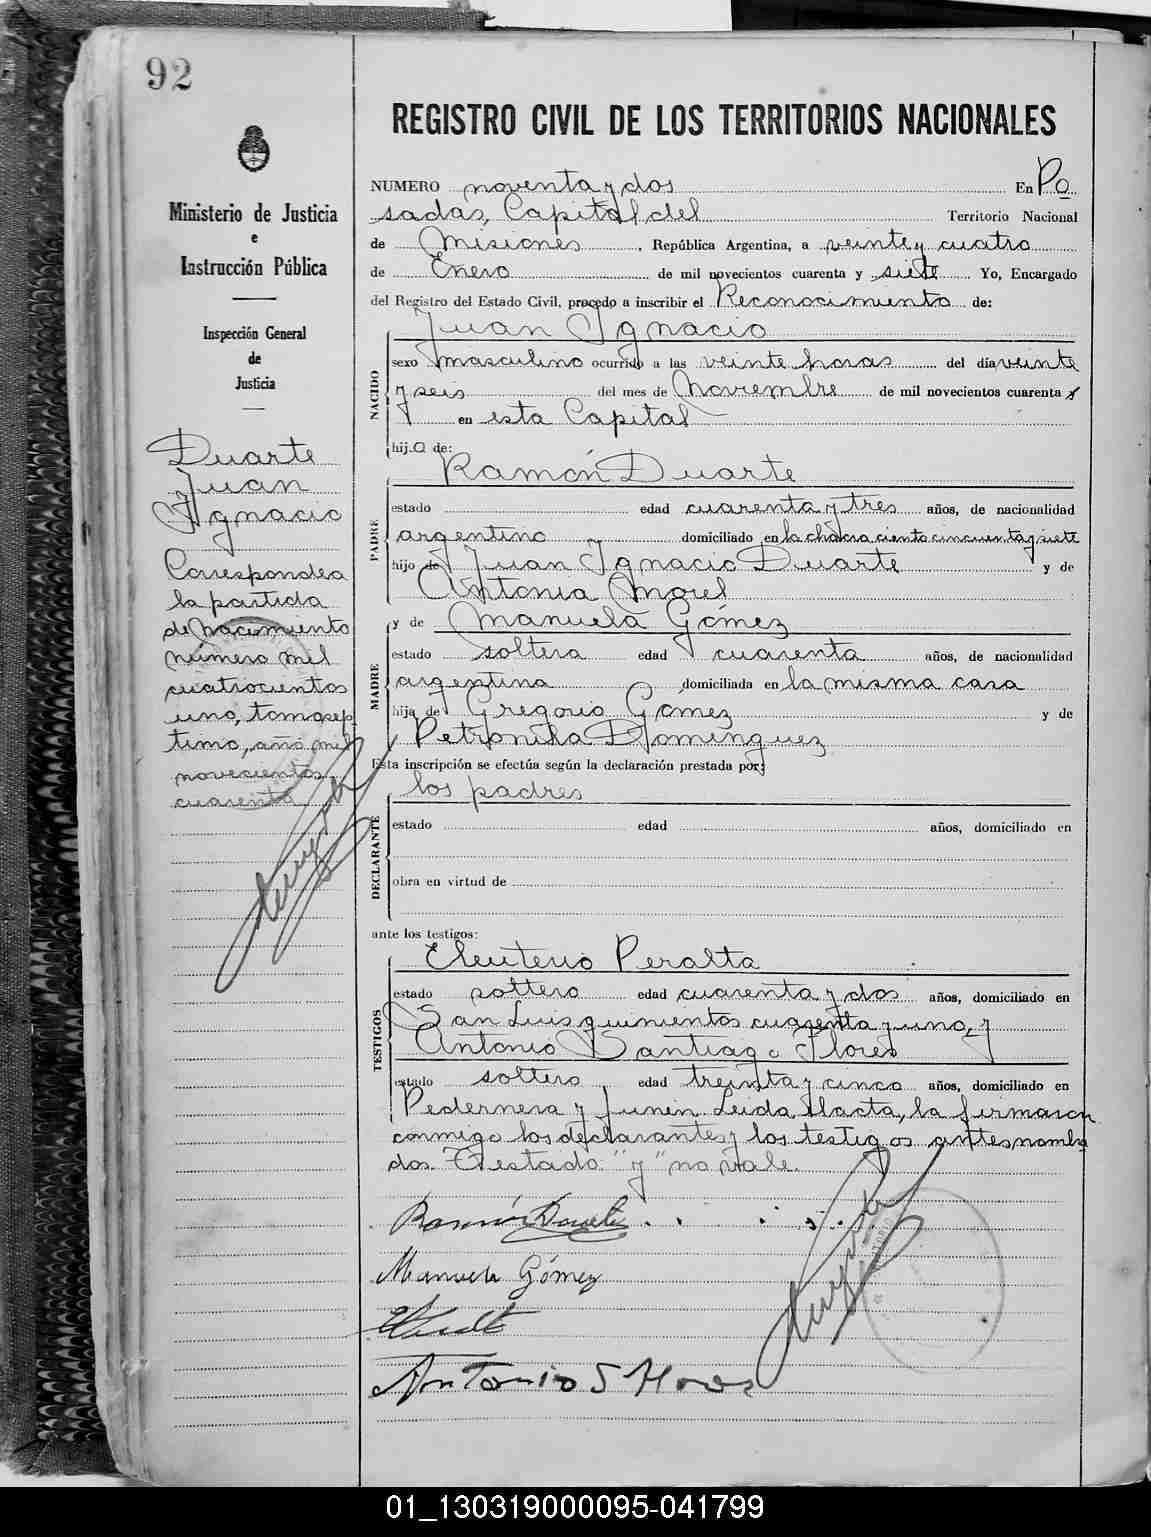 92
REGISTRO CIVIL DE LOS TERRITORIOS NACIONALES
Ministerio de Justicia
e
Instrucción Pública
Inspección General
de
Justicia
Duarte
Juan
Ignacio
Corresponde a
la partida
de nacimiento
número mil
cuatrocientos
uno, tomo sep
timo, año mil
novecientos
cuarenta
NUMERO noventa y dos En Po
sadas, Capital del Territorio Nacional
de Misiones, República Argentina, a veinte y cuatro
de Enero de mil novecientos cuarenta y siete Yo, Encargado
del Registro del Estado Civil, procedo a inscribir el Reconocimiento de:
NACIDO
Juan Ignacio
sexo masculino ocurrido a las veinte horas del día veinte
y seis del mes de Noviembre de mil novecientos cuarenta y
en esta Capital
hij.o de:
PADRE
Ramón Duarte
estado edad cuarenta y tres años, de nacionalidad
argentino domiciliado en la chacra ciento cincuenta y siete
hijo de Juan Ignacio Duarte y de
Antonia Morel
MADRE
y de Manuela Gómez
estado soltera edad cuarenta años, de nacionalidad
argentina domiciliada en la misma casa
hija de Gregorio Gomez y de
Petronila Dominguez
Esta inscripción se efectúa según la declaración prestada por:
DECLARANTE
los padres
estado edad años, domiciliado en
obra en virtud de
ante los testigos:
TESTIGOS
Eleuterio Peralta
estado soltero edad cuarenta y dos años, domiciliado en
San Luis quinientos cuarenta y uno, y
Antonio Santiago Flores
estado soltero, edad treinta y cinco años, domiciliado en
Pedernera y Junin. Leida el acta, la firmaron
conmigo los declarantes y los testigos antes nombra
dos. Testado: "y" no vale.
Ramón Duarte
Manuela Gómez
Antonio S Flores
01_130319000095-041799